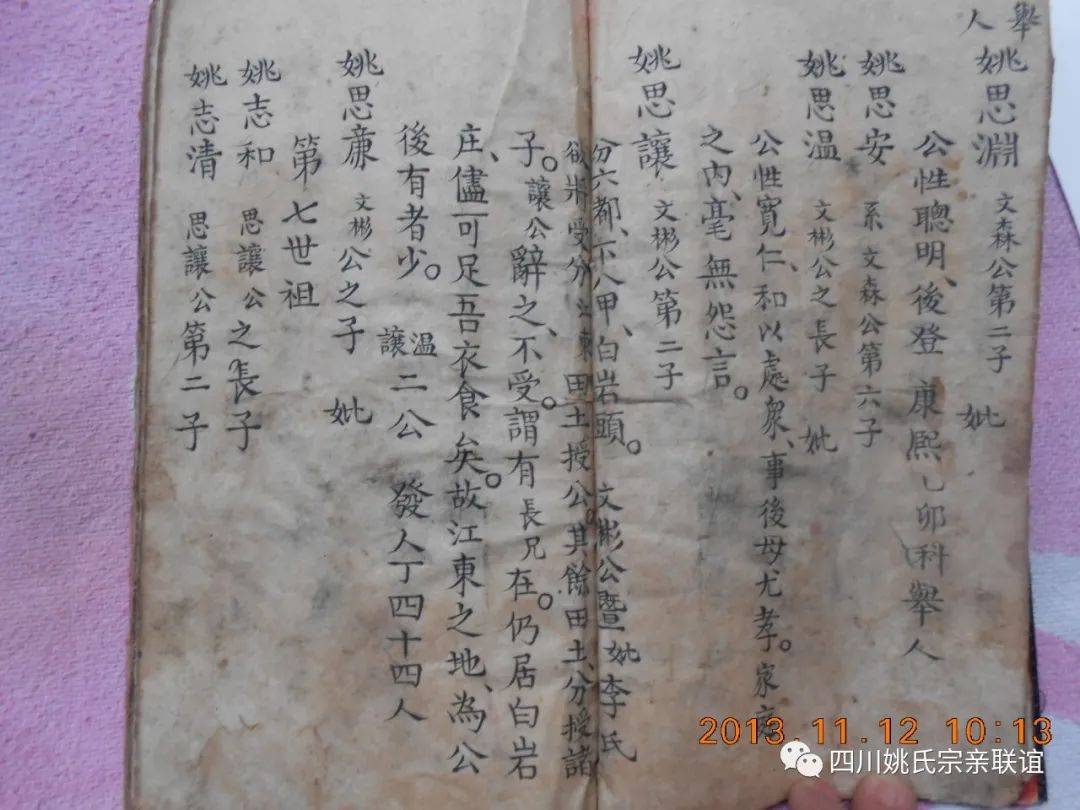 舉人
姚思淵 文森公第二子 妣
公性聰明、後登 康熙乙卯科舉人
姚思安 系文森公第六子
姚思温 文彬公之長子 妣
公性寬仁、和以處衆、事後母尤孝。家庭
之内、毫無怨言。
姚思讓 文彬公第二子
分六都、下八甲、白岩頭。 文彬公暨妣李氏
欲將受分江東田土授公。其餘田土、分授諸
子。讓公辭之、不受。謂有長兄在。仍居白岩
庄、儘可足吾衣食矣。故江東之地、為公
後有者少。 温讓二公 發人丁四十四人
姚思康 文彬公之子 妣
第七世祖
姚志和 思讓公之長子
姚志清 思讓公第二子
2013.11.12 10:13
四川姚氏宗亲联谊